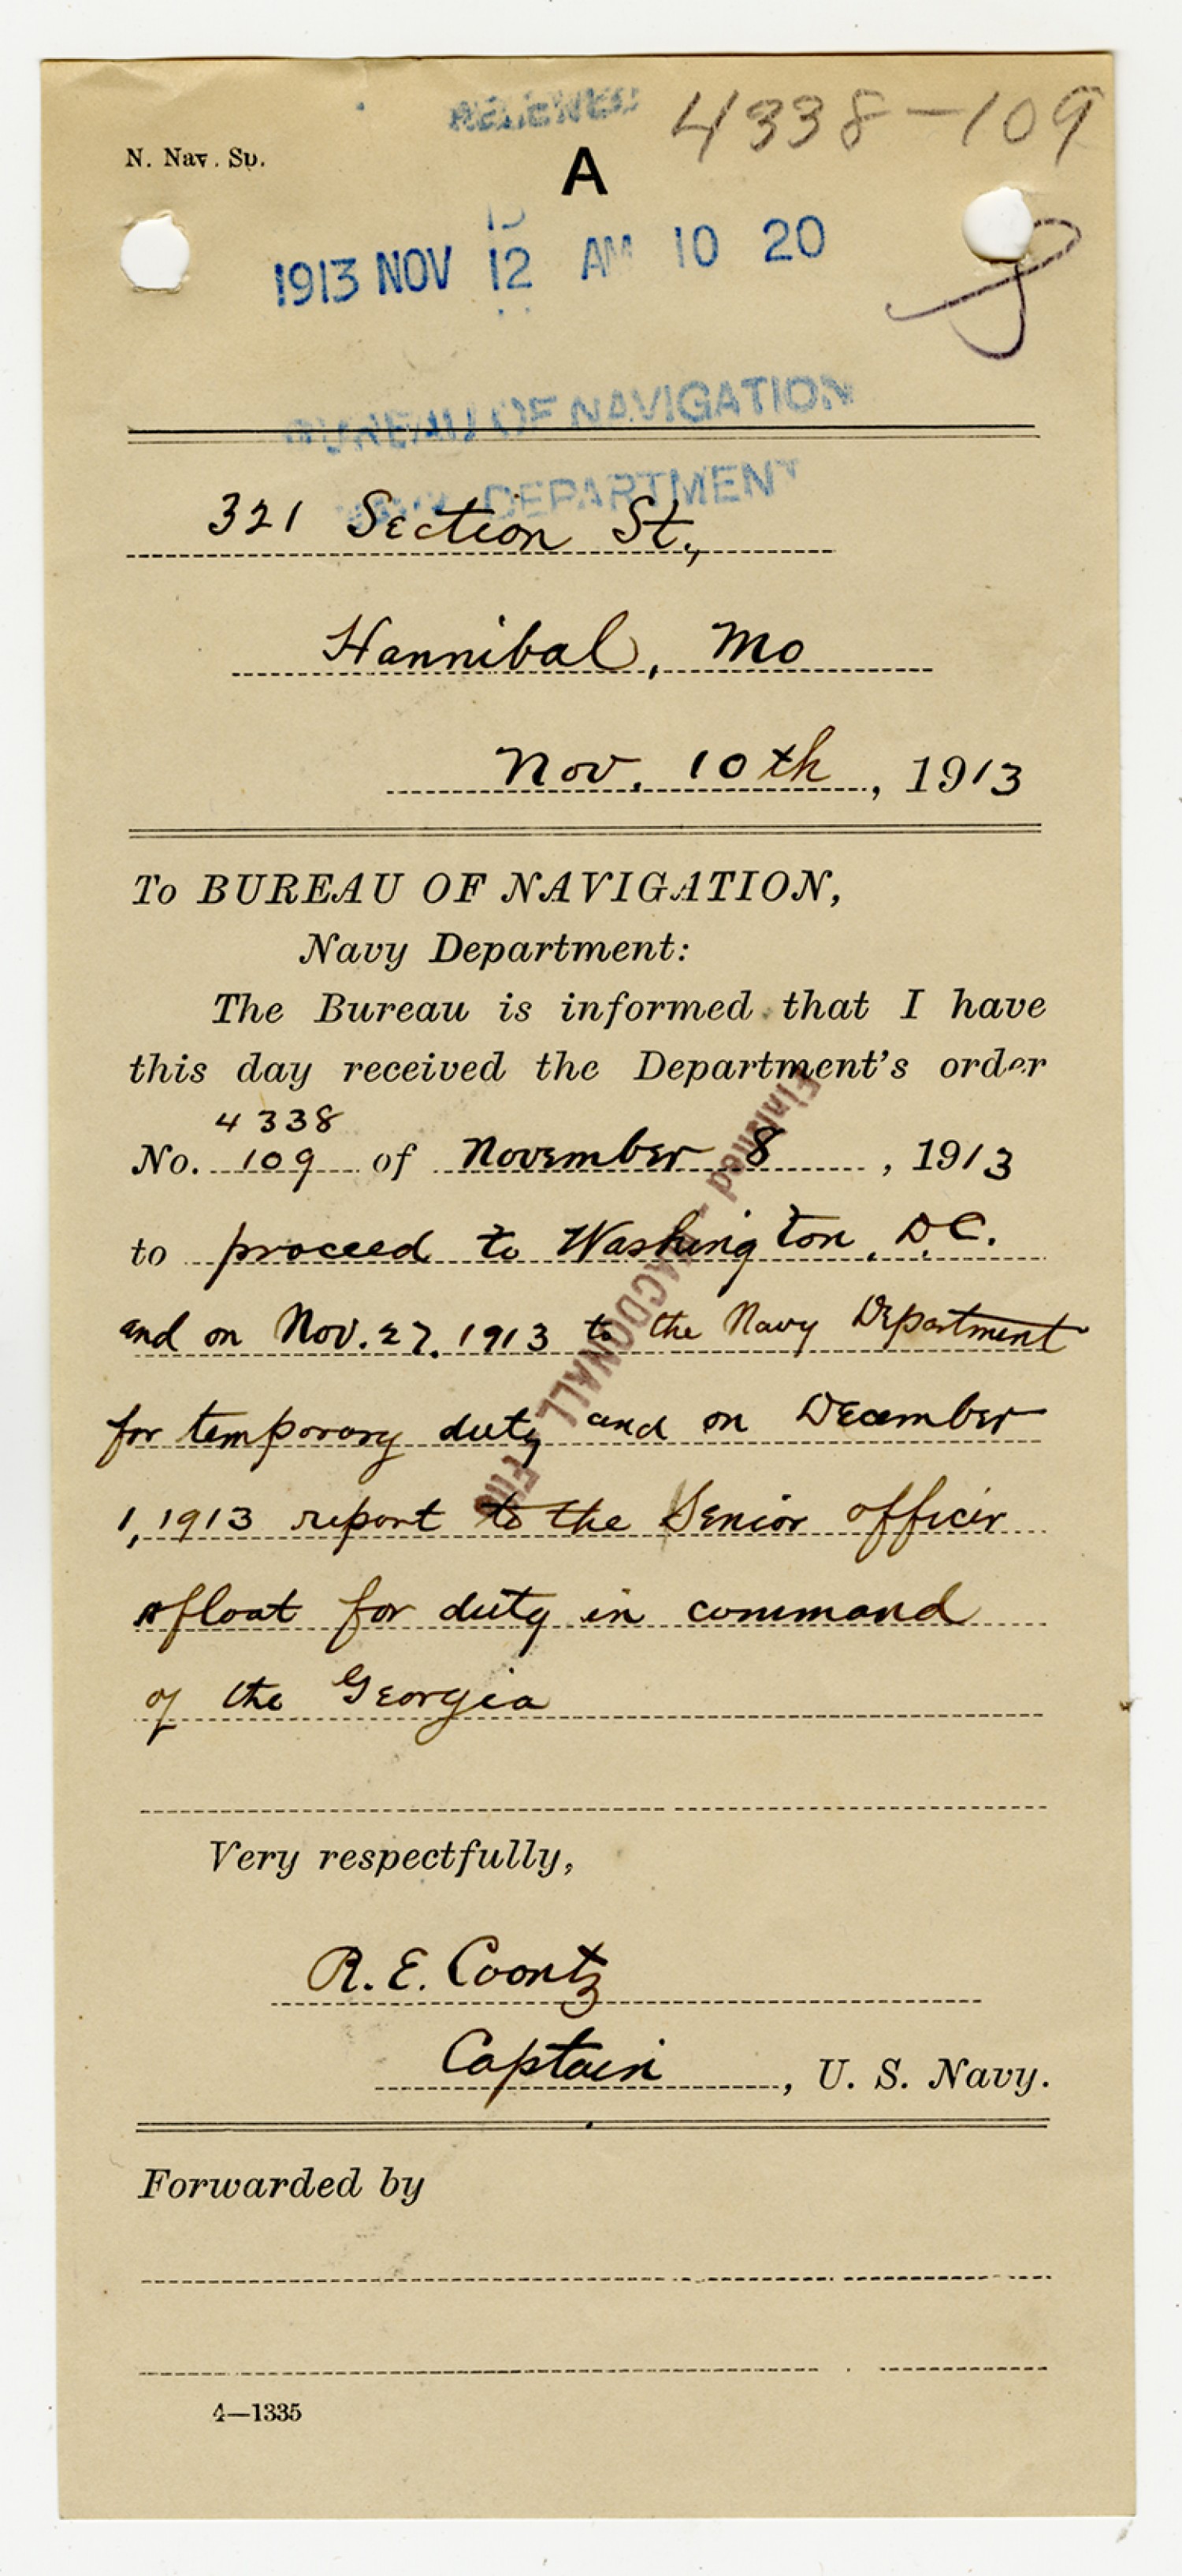 RECEIVED
4338-109
N. Nav. Sp.
A
1913 NOV 12 AM 10 20
BUREAU OF NAVIGATION
NAVY DEPARTMENT
321 Section St.,
Hannibal, Mo
Nov. 10th, 1913
To BUREAU OF NAVIGATION,
Navy Department:
The Bureau is informed that I have
this day received the Department's order
4338
No. 109 of November 8, 1913
to proceed to Washington, D.C.
and on Nov. 27. 1913 to the Navy Department
for temporary duty and on December
1, 1913 report to the Senior officer
afloat for duty in command
of the Georgia
Finished - MACDONALL File
Very respectfully,
R. E. Coontz
Captain, U. S. Navy.
Forwarded by
4—1335